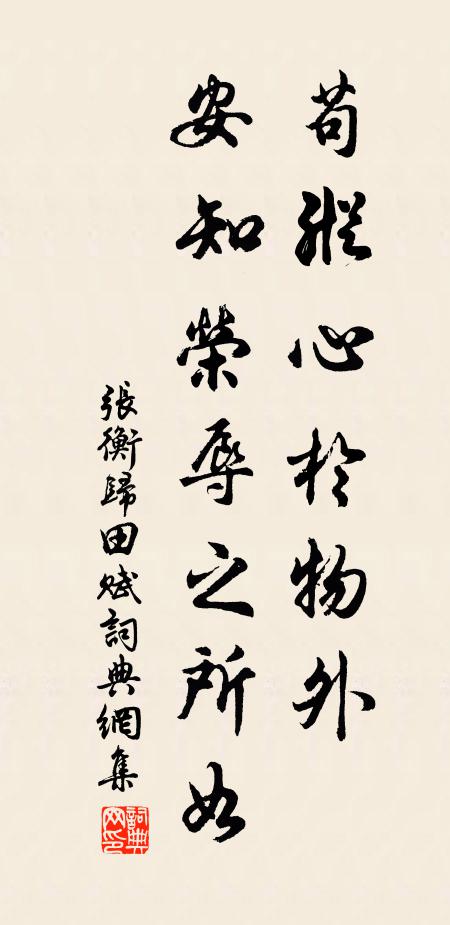 苟縱心於物外
安知榮辱之所如
張衡歸田賦詞典網集
詞典网印